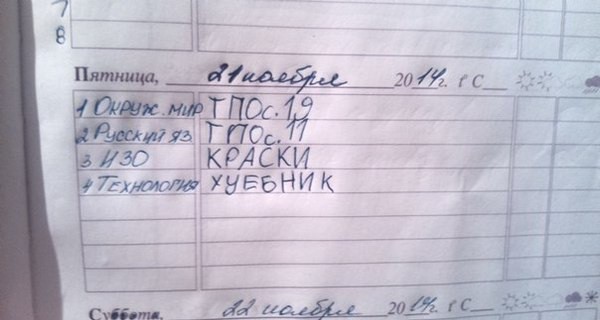 7
8
Пятница, 21 ноября 2014г. t° C
1 Окруж. мир ТПОс.19
2 Русский яз ТПОс.11
3 ИЗО КРАСКИ
4 Технология ХУЕБНИК
Суббота, 22 ноября 2014г. t° C